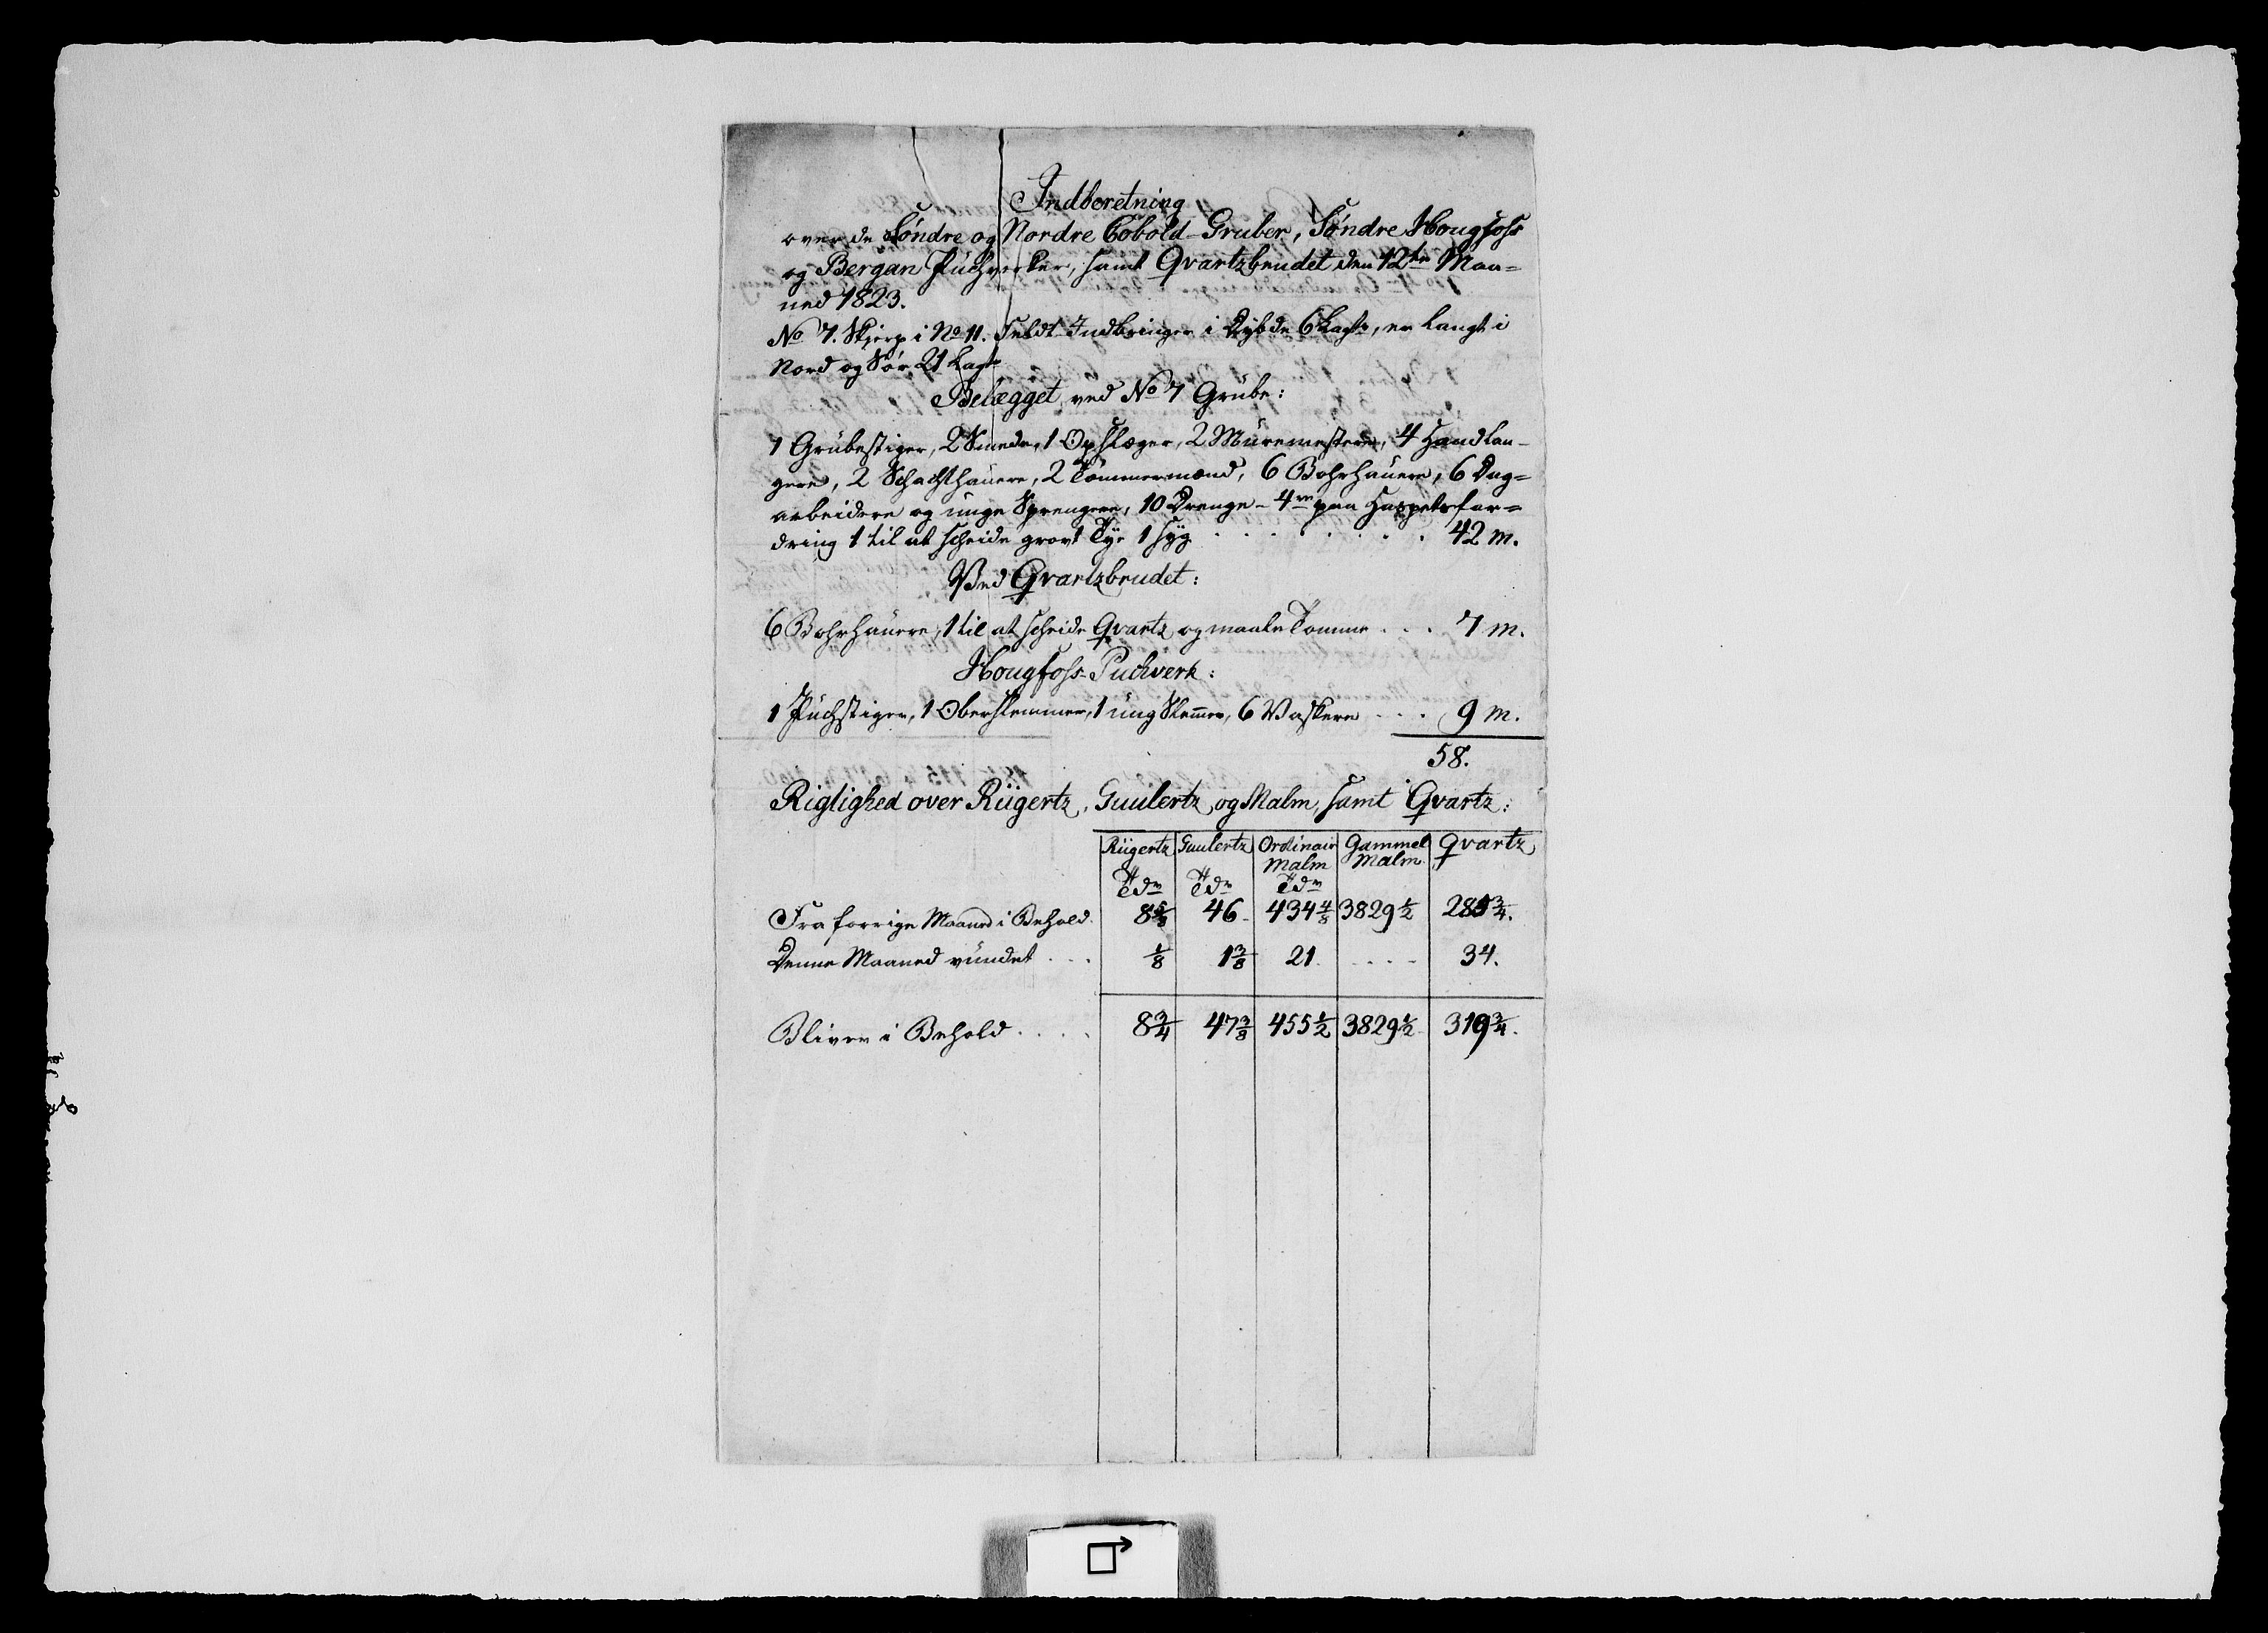 Indberetning
over de Søndre og Nordre Cobold-Gruber, Søndre Hougfoss
og Bergan Puchverker, samt Qvartzbrudet den 12te Maa=
ned 1823.
No 7. Skjerp i No 11. Feldt Indbringer i Dybde 6 Lagtr, er langt i
Nord og Sør 21 Lagtr
Belægget ved No 7 Grube:
1 Grubestiger, 2 Smede, 1 Opslæger, 2 Muremestere, 4 Handlan-
gere, 2 Schachthauere, 2 Tømmermænd, 6 Bohrhauere, 6 Dag=
arbeidere og unge Sprengere, 10 Drenge - 4re paa Haspelefor=
dring 1 til at scheide grovt Tye 1 syg . . . . . . . . 42 m.
Ved Qvartzbrudet:
6 Bohrhauere, 1 til at scheide Qvartz og maale Tømmer . . . 7 m.
Hougfoss-Puchverk:
1 Puchstiger, 1 Oberslemmer, 1 ung Slemer, 6 Vaskere . . . . 9 m.
58.
Rigtighed over Rügertz, Guulertz og Malm, samt Qvartz:
Rügertz Guulertz Ordinair Gammel Qvartz
Malm Malm
Tdr Tdr Tdr
Fra forrige Maaned i Behold. 8 5/8 46 - 434 4/8 3829 1/2 285 3/4.
Denne Maaned vundet . . . 1/8 1 3/8 21. . . . - 34.
Bliver i Behold . . . . 8 3/4 47 3/8 455 1/2 3829 1/2. 319 3/4.